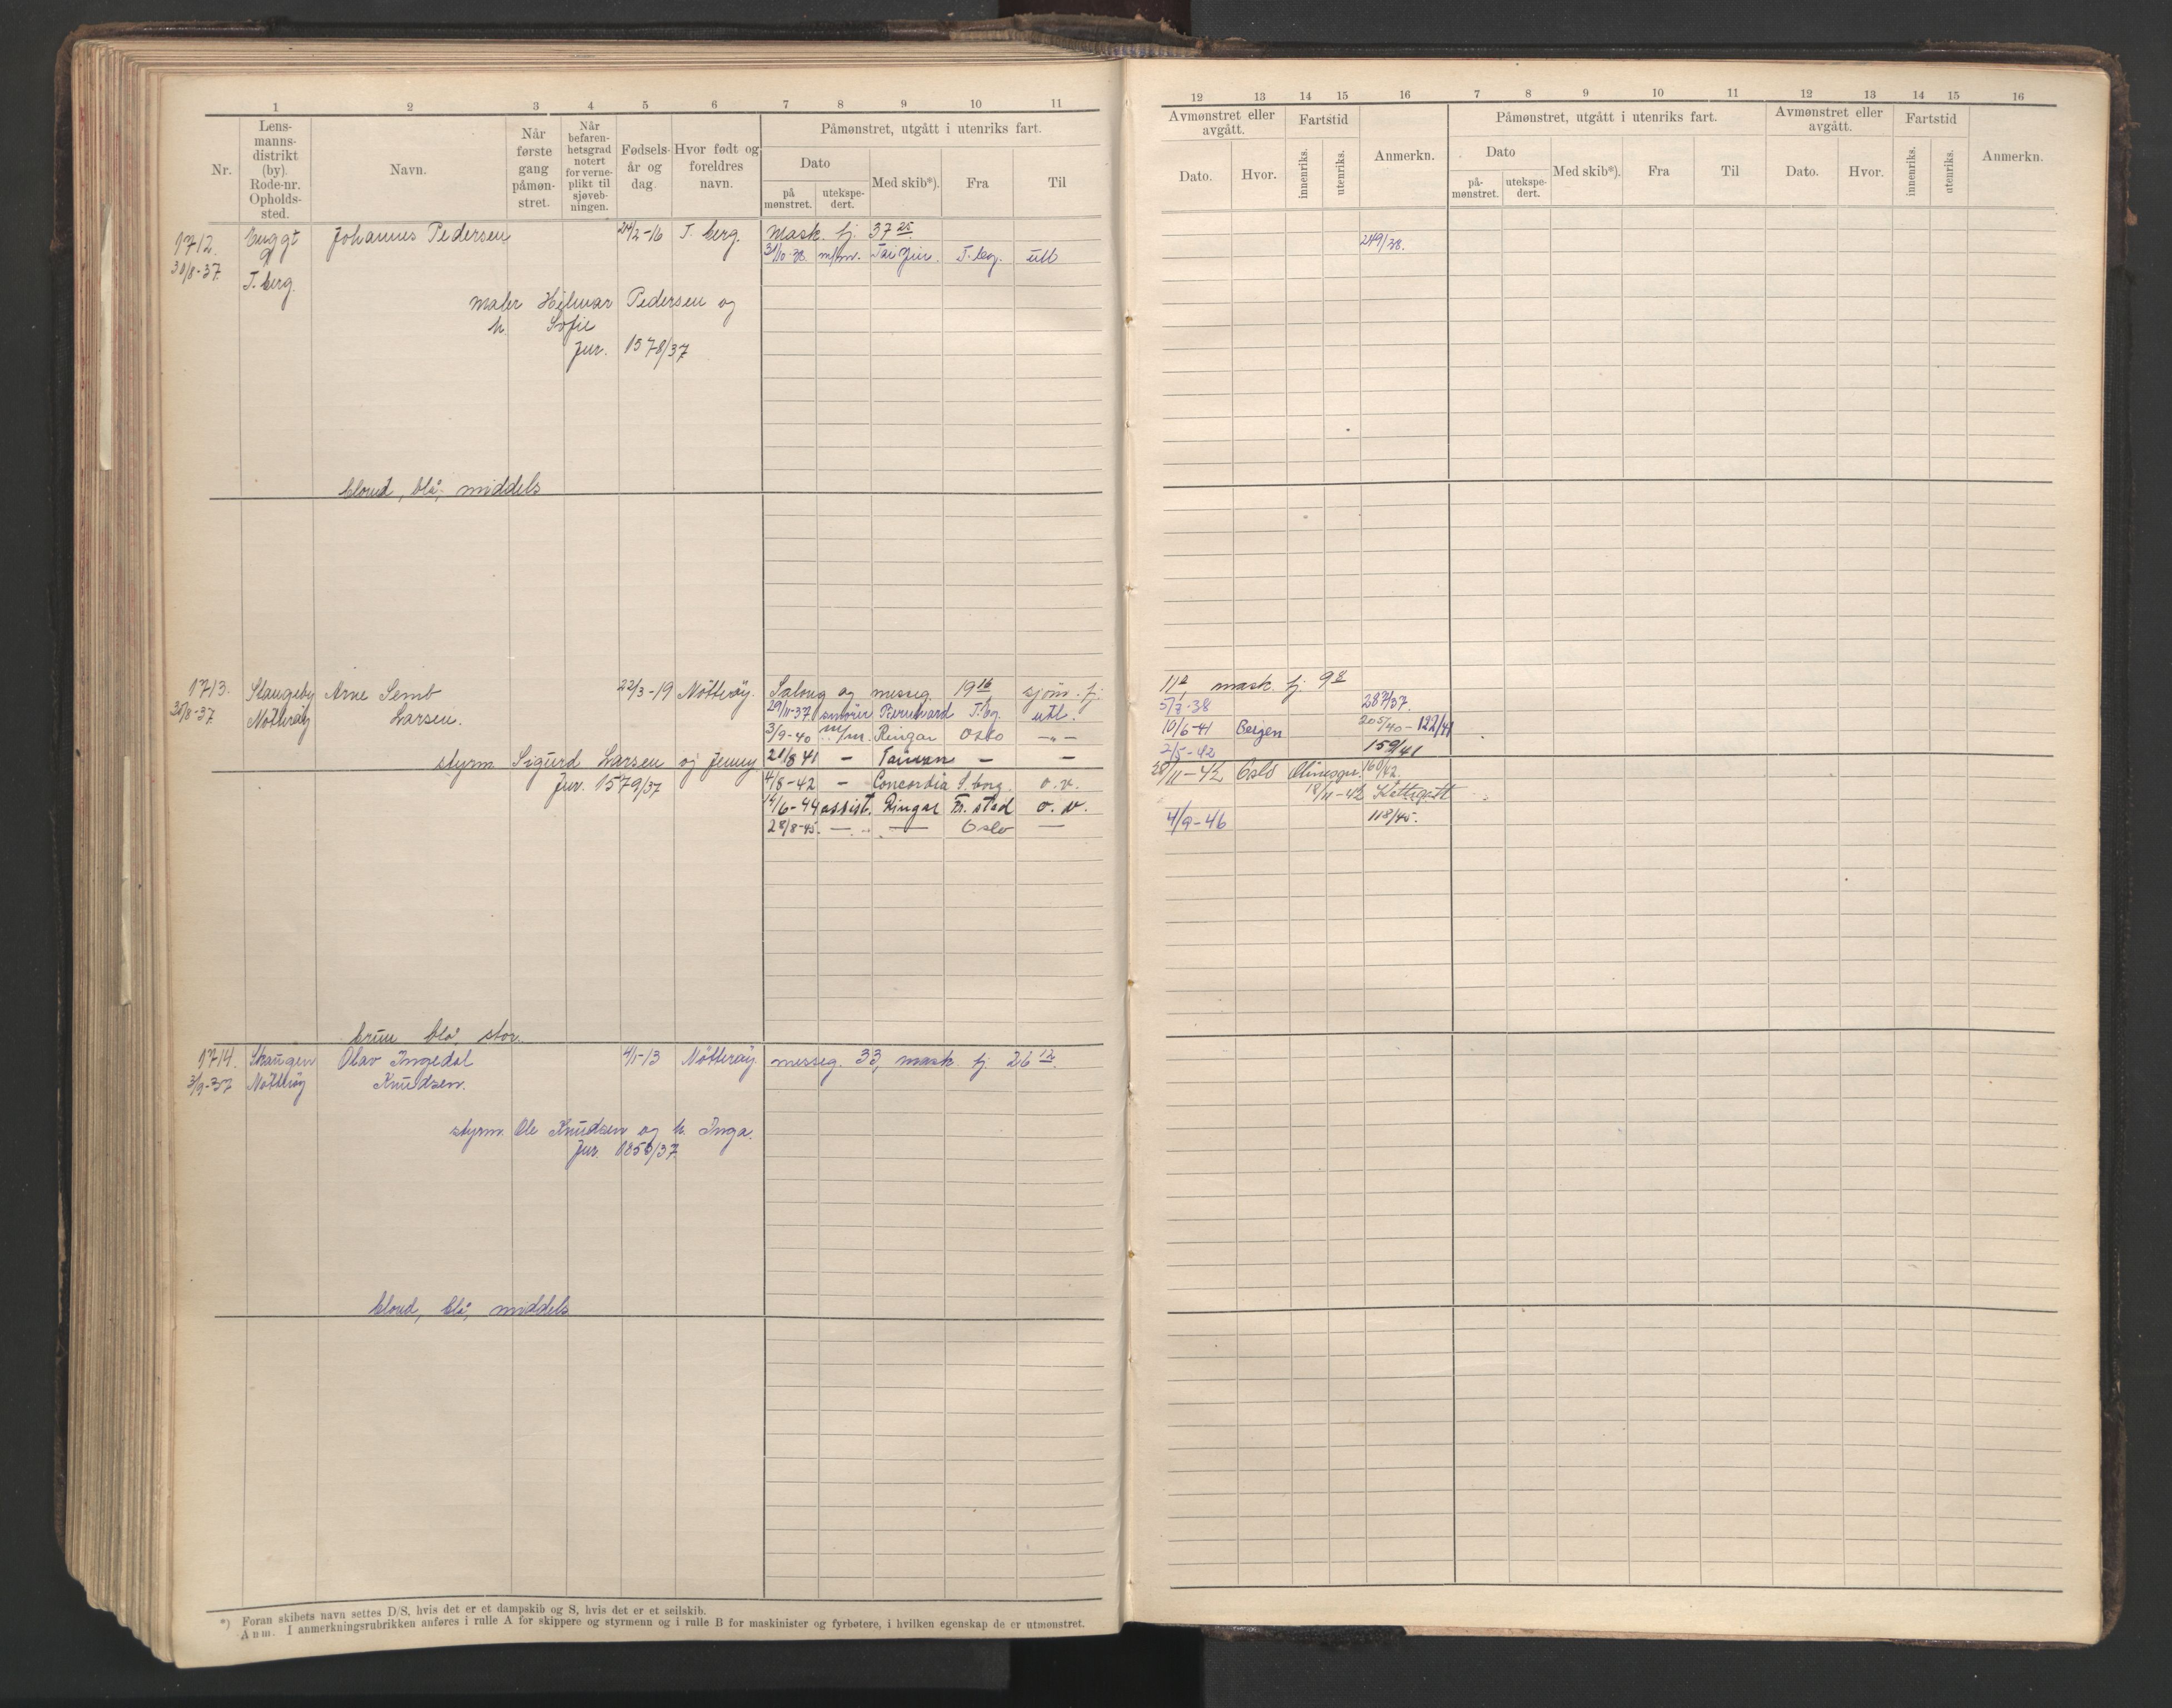 1 2 3 4 5 6 7 8 9 10 11
Nr.
Lens-
manns-
distrikt
(by).
Rode-nr.
Opholds-
sted.
Navn.
Når
første
gang
påmøn-
stret.
Når
befaren-
hetsgrad
notert
for verne-
plikt til
sjøveb-
ningen.
Fødsels-
år og
dag.
Hvor født og
foreldres
navn.
Påmønstret, utgått i utenriks fart.
Dato
på
mønstret.
utekspe-
dert.
Med skib*).
Fra
Til
1712. Johannes Pedersen 24/2-16 T. berg. Mask. fj. 37 25
31/8-37. T. berg. 31/10-38 m/m. Tai Jin. T. bg. utl
maler Hilmar Pedersen og
h. Sofie
Jur. 1578/37
blond, blå, middels
1713. Stangeby Arne Semb 22/3-19 Nötteröy. Salong og messeg. 19 16 sjöm. fj.
31/8-37 Nötteröy Larsen. 29/11-37 smörer Bernhard T. bg. utl.
3/9-40 m/m. Ringar Oslo -"-
styrm Sigurd Larsen og Jenny 21/8 41 — Taiwan — —
Jur. 1579/37 4/8-42 — Concordia S. borg. o. v.
14/6-44 assist. Ringar Fr. stad o. v.
28/8-45. — — Oslo —
brun blå, stor.
1714. Skaugen Olav Ingedal 4/1-13 Nötteröy messeg. 33, mask. fj. 26 12.
3/9-37 Nötteröy Knudzen.
styrm. Ole Knudzen og h. Inga.
Jur.
blond, blå, middels
*) Foran skibets navn settes D/S, hvis det er et dampskib og S, hvis det er et seilskib.
Anm. I anmerkningsrubrikken anføres i rulle A for skippere og styrmenn og i rulle B for maskinister og fyrbøtere, i hvilken egenskap de er utmønstret.
12 13 14 15 16 7 8 9 10 11 12 13 14 15 16
Avmønstret eller
avgått.
Dato.
Hvor.
Fartstid
innenriks.
utenriks.
Anmerkn.
Påmønstret, utgått i utenriks fart.
Dato
på-
mønstret.
utekspe-
dert.
Med skib*).
Fra
Til
Avmønstret eller
avgått.
Dato.
Hvor.
Fartstid
innenriks.
utenriks.
Anmerkn.
249/38.
mask. fj. 9 8
5/7-38 287/37.
10/6-41 Bergen 205/40 - 122/41
2/5-42 159/41
28/11-42 Oslo 160/42.
18/11-42 Kattegatt
4/9-46 118/45.